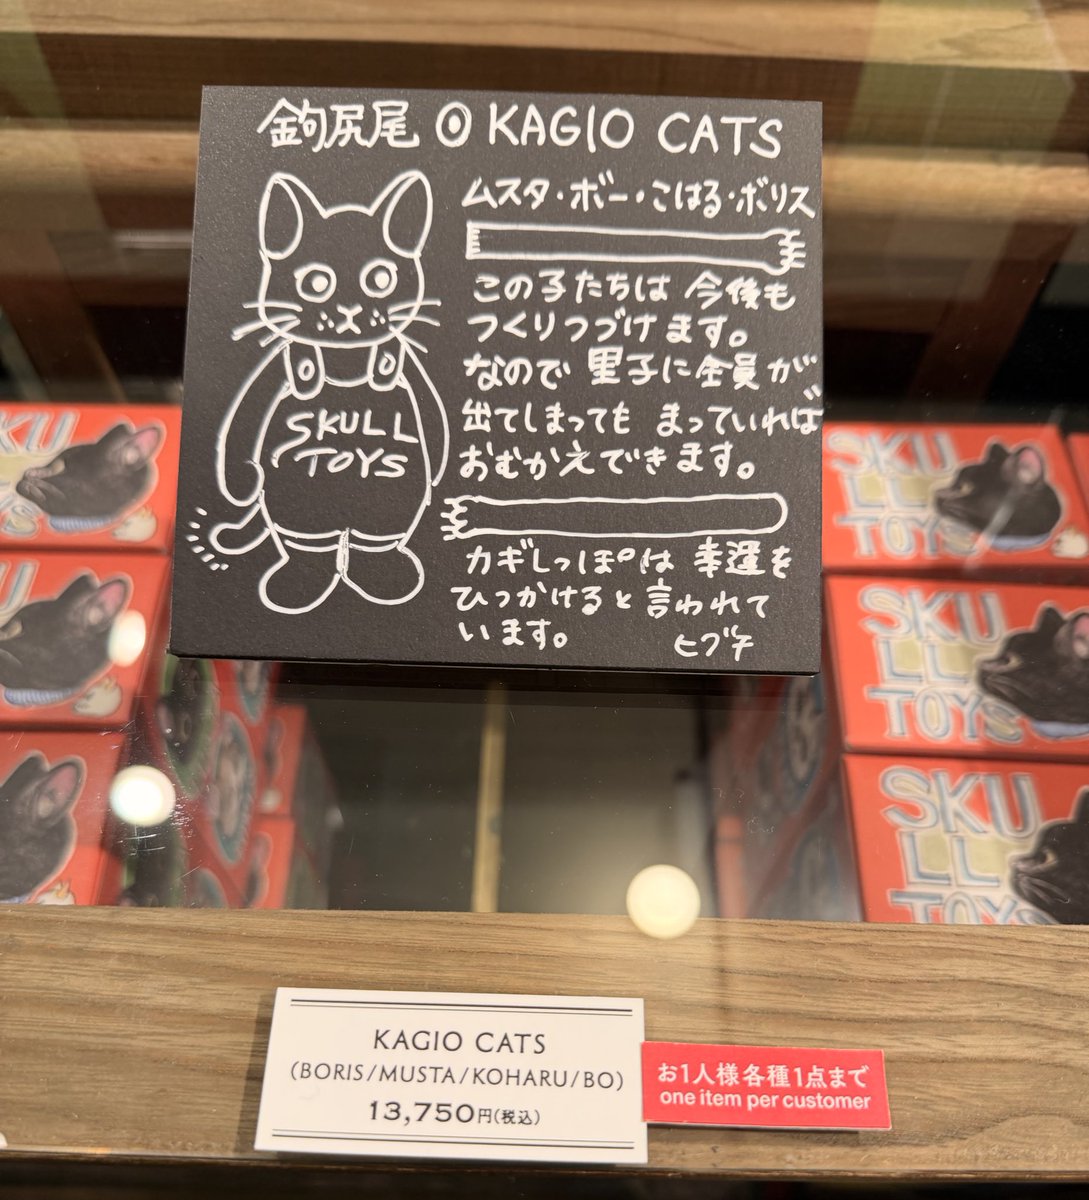 鉤尻尾 KAGIO CATS
ムスタ・ボー・こはる・ボリス
この子たちは 今後も
つくりつづけます。
なので 里子に全員が
出てしまっても まっていれば
おむかえできます。
カギしっぽは 幸運を
ひっかけると 言われて
います。 ヒグチ
SKULL
TOYS
SKU
SKU
LL
TOYS
SKU
LL
TOYS
SKU
LL
TOYS
KAGIO CATS
(BORIS/MUSTA/KOHARU/BO)
13,750円(税込)
お1人様各種1点まで
one item per customer